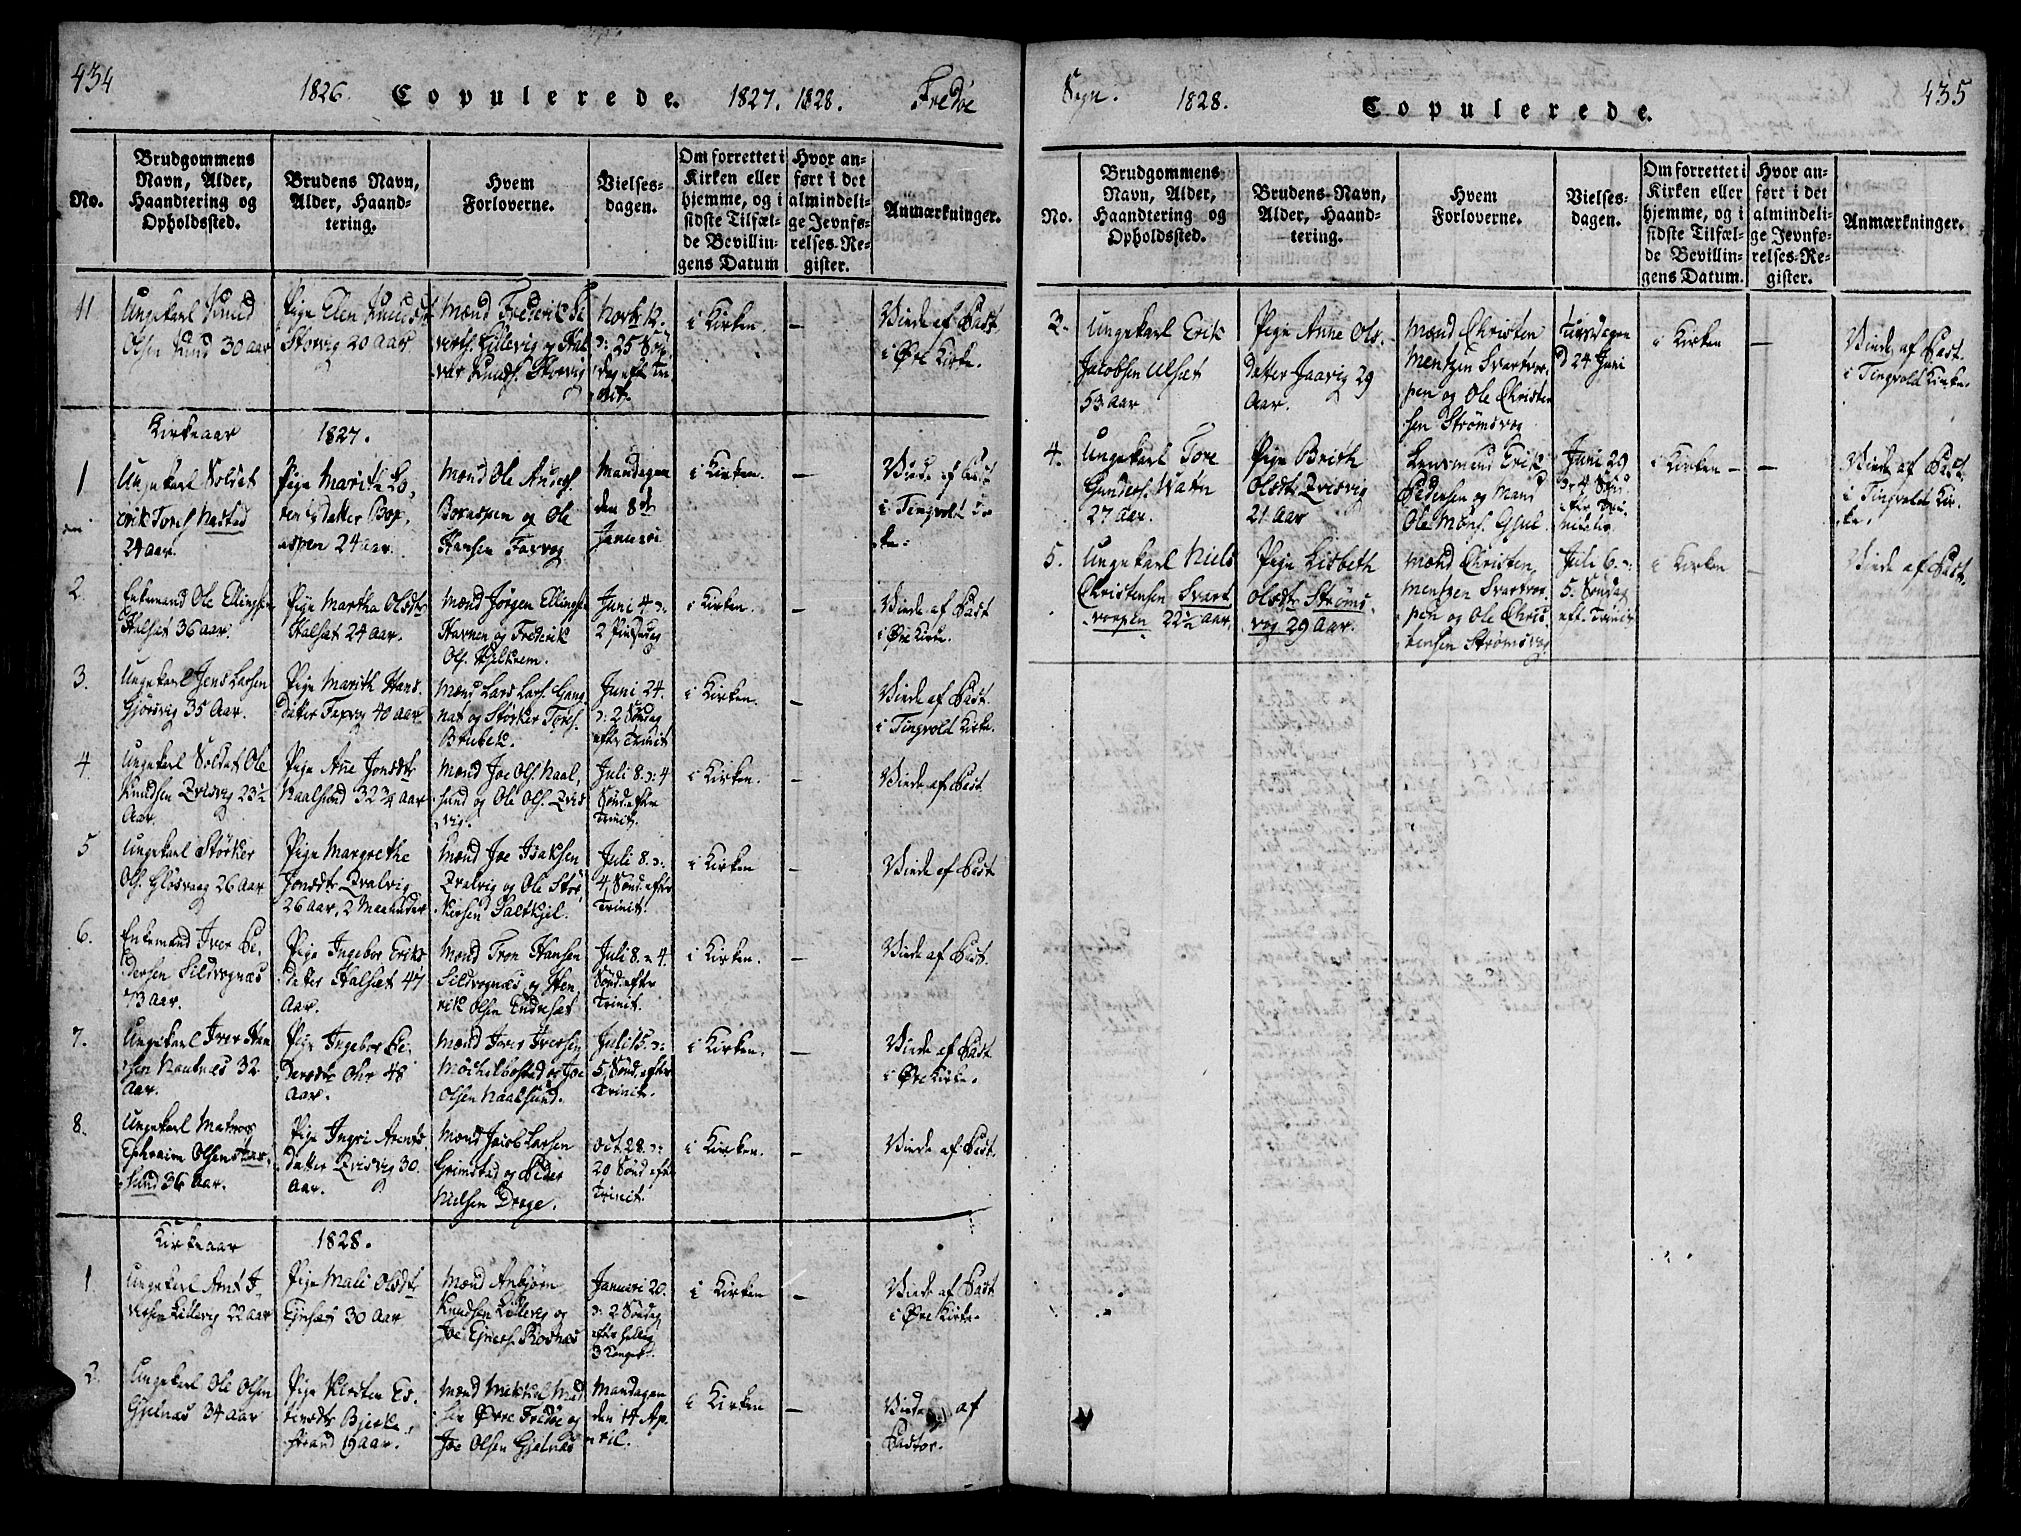 434
1826. Copulerede. 1827. 1828. Fredøe
No.
Brudgommens Navn, Alder, Haandtering og Opholdssted.
Brudens Navn, Alder, Haandtering.
Hvem Forloverne.
Vielsesdagen.
Om forrettet i Kirken eller hjemme, og i sidste Tilfælde Bevillingens Datum
Hvor anført i det almindelige Jevnførelses-Register.
Anmærkninger.
11
Ungekarl Knud
Olsen Sund 30 aar
Pige Elen Knudsdt
Storvig 20 Aar
Mænd Frederik Si
vers. Lillevig og Hal
var Knuds. Storvig
i Kirken.
—
Viede af Past.
i Øre Kirke.
Kirkeaar 1827.
1
Ungekarl Soldat
Erik Tores. Nastad
24 aar.
Pige Marith
24 aar.
Mænd Ole Anders.
og Ole
Hansen Farvog
Mandagen
den 8de
Januari
i Kirken.
—
Viede af Past
i Tingvold Kir
ke.
2.
Enkemand Ole Ellings.
Halset 36 aar.
Pige Martha Olsdtr
Halset 24 aar.
Mænd Jørgen Ellings.
Havnen og Frederik
Ols. Hjelkrem.
Juni 4 ɔ:
2 Pinsedag
i Kirken.
—
Viede af Past
i Øre Kirke.
3.
Ungekarl Jens Larsen
Gjørsvig 35 Aar.
Pige Marith Hans
datter Farvog 40 aar
Mænd Lars Lars. Gang
nat og Størker Tores.
Brubek.
Juni 24.
ɔ: 2 Søndag
efter Trinit
i Kirken.
—
Viede af Past.
i Tingvold Kirke.
4.
Ungekarl Soldat Ole
Knudsen Qvisvig 23½
Aar.
Pige Ane Jonsdtr
Naalsund 32¾ aar
Mænd Joe Ols. Naal,
sund og Ole Ols. Qvis
vig.
Juli 8. ɔ: 4
Sønd. efter
Trinit.
i Kirken.
—
Viede af Past
5
Ungekarl Størker
Ols. Gløsvaag 26 Aar
Pige Margrethe
Jonsdtr Qvalvig
26 aar, 2 Maaneder
Mænd Joe Isaksen
Qvalvig og Ole Stør
kersen Saltkjel.
Juli 8. ɔ:
4, Sønd. efter
Trinit.
i Kirken
—
Viede af Past
6.
Enkemand Iver Pe,
dersen Sildvognæs
73 aar.
Pige Ingebor Eriks
datter Halset 47
Aar.
Mænd Tron Hansen
Sildvognæs og Hen
rik Olsen Endreset
Juli 8. ɔ: 4.
Sønd. efter
Trinit.
i Kirken.
—
Viede af Past.
7.
Ungekarl Iver Han
sen Nautnæs 32
Aar.
Pige Ingebor Pe,
dersdtr Ohr 48
Aar.
Mænd Iver Iversen
Møchelbostad og Joe
Olsen Naalsund.
Juli 15. ɔ:
5, Sønd. efter
Trinit.
i Kirken.
—
Viede af Past
i Øre Kirke.
8.
Ungekarl Matros
Ephraim Olsen
36 Aar.
Pige Ingri Arents
datter Qvisvig 30.
Aar.
Mænd Jacob Larsen
Grimstad og Peder
Nielsen Drage.
Oct. 28. ɔ:
20 Sønd. efter
Trinit.
i Kirken.
—
Viede af Past.
Kirkeaar 1828.
1
Ungekarl Arnt I,
versen Lillevig 22 aar
Pige Mali Olsdtr
Ejeset 30 Aar
Mænd Anbjørn
Knudsen Lillevig og
Joe Rosnæs
Januari 20.
ɔ: 2 Søndag
efter hellig
3 Konger.
i Kirken
—
Viede af Past
i Øre Kirke.
2.
Ungekarl Ole Olsen
Gjelnæs 34 aar
Pige Kirsten Es,
tensdtr Bjerke,
strand 19 aar.
Mænd Mikkel Mad
sen Øvre Fredøe og
Joe Olsen Gjelnæs
Mandagen
den 14 Ap,
ril.
i Kirken
—
Viede af
Pastor.
Sogn. 1828. Copulerede. 435
No.
Brudgommens Navn, Alder, Haandtering og Opholdssted.
Brudens Navn, Alder, Haandtering.
Hvem Forloverne.
Vielsesdagen.
Om forrettet i Kirken eller hjemme, og i sidste Tilfælde Bevillingens Datum.
Hvor anført i det almindelige Jevnførelses-Register.
Anmærkninger.
3.
Ungekarl Erik
Jacobsen Ulset
53 aar
Pige Anne Ols
datter Jaavig 29
Aar.
Mænd Christen
Mentzen Svartvor
pen og Ole Christen
sen Strømsvog
Tirsdagen
d 24 Juni
i Kirken
—
Viede af Past.
i Tingvold Kirke.
4.
Ungekarl Tore
Gunders. Watn
27 aar.
Pige Brith
Olsdtr Qvisvig
21 Aar
Lensmand Erik
Pedersen og Mand
Ole Møns. Gjul
Juni 29
ɔ: 4 Søn
efter Tri
nitatis
i Kirken
—
Viede af Past.
i Tingvold Kir
ke.
5.
Ungekarl Niels
Christensen Svart
vorpen 22½ aar,
Pige Lisbeth
Olsdtr Strøms,
vog 29 Aar.
Mænd Christen
Mentzen Svartvor,
pen og Ole Chris
tensen Strømsvog
Juli 6. ɔ:
5. Søndag
eft. Trinit
i Kirken
—
Viede af Past.